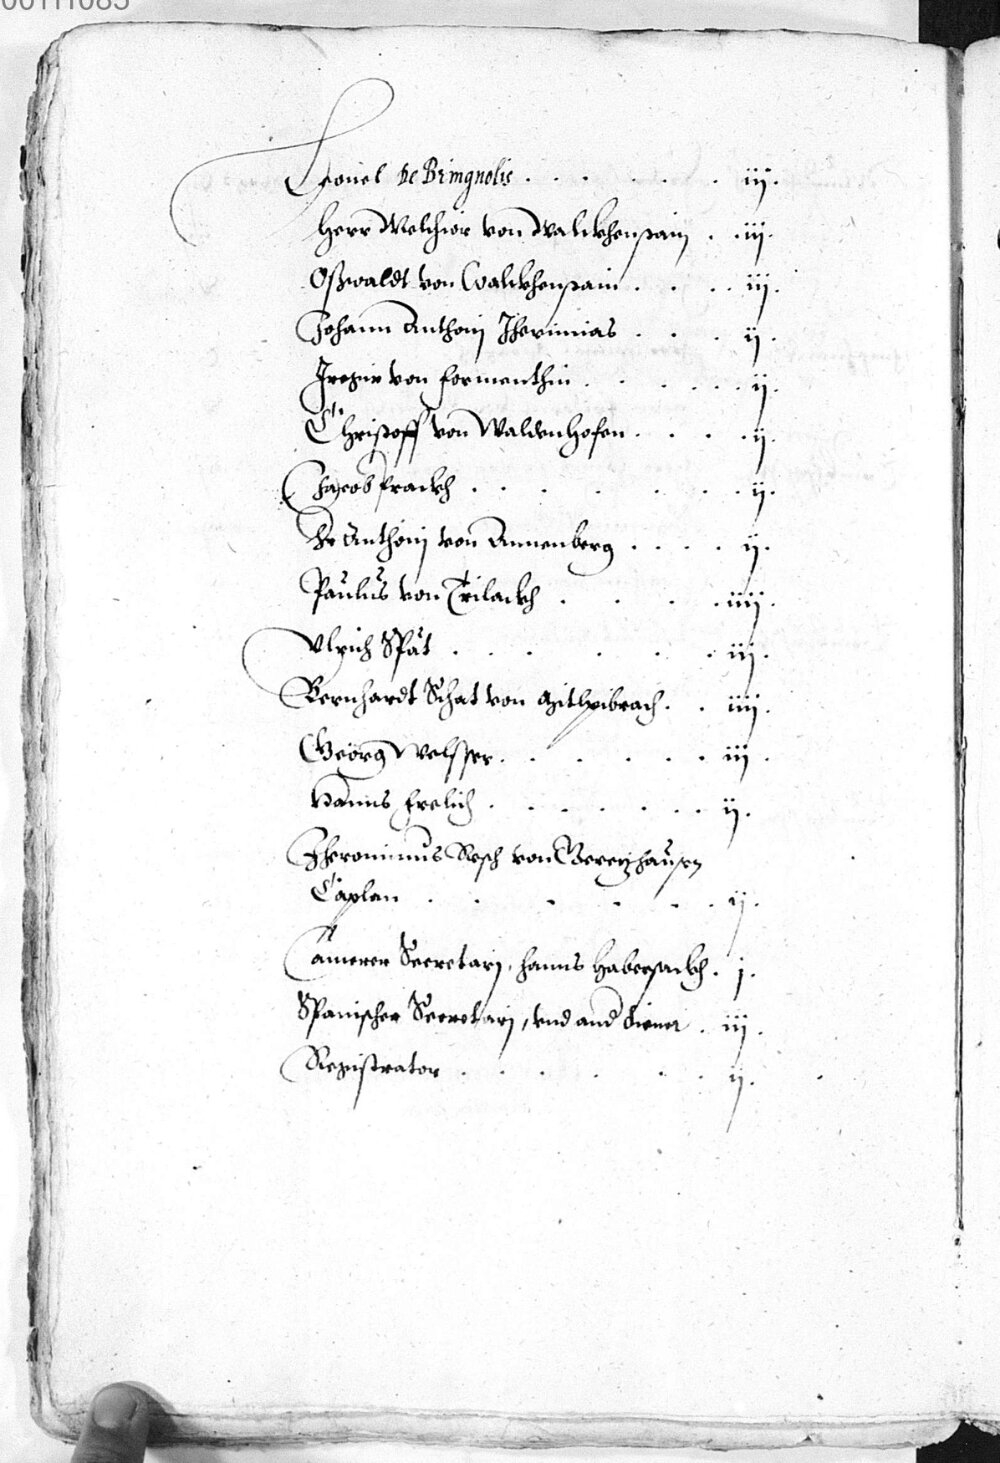 00111085
Leonel de Brmgnolis . . . . . . iij.
Herr Melchior von Walckhenstain . . iij.
Oßwaldt von Walckhenstain . . . . iij.
Johann Anthoni Jheronimas . . . ij.
von Formenthin . . . . . . ij.
Christoff von Waldenhofen . . . . ij.
Jacob Frackh . . . . . . . ij.
Anthonj von Annenberg . . . . ij.
Paulus von Trilackh . . . . iiij.
Vlrich Spät . . . . . . iij.
Bernhardt Schat von . . iiij.
Georg Welsser . . . . . . iij.
Hanns Frelich . . . . . . ij.
Jheronimus Resch von Gerenzhausen
Caplan . . . . . . ij.
Camerer Secretarj, Hanns Habersackh . j.
Spanischer Secretarj, vnd and diener . iij.
Registrator . . . . . . ij.